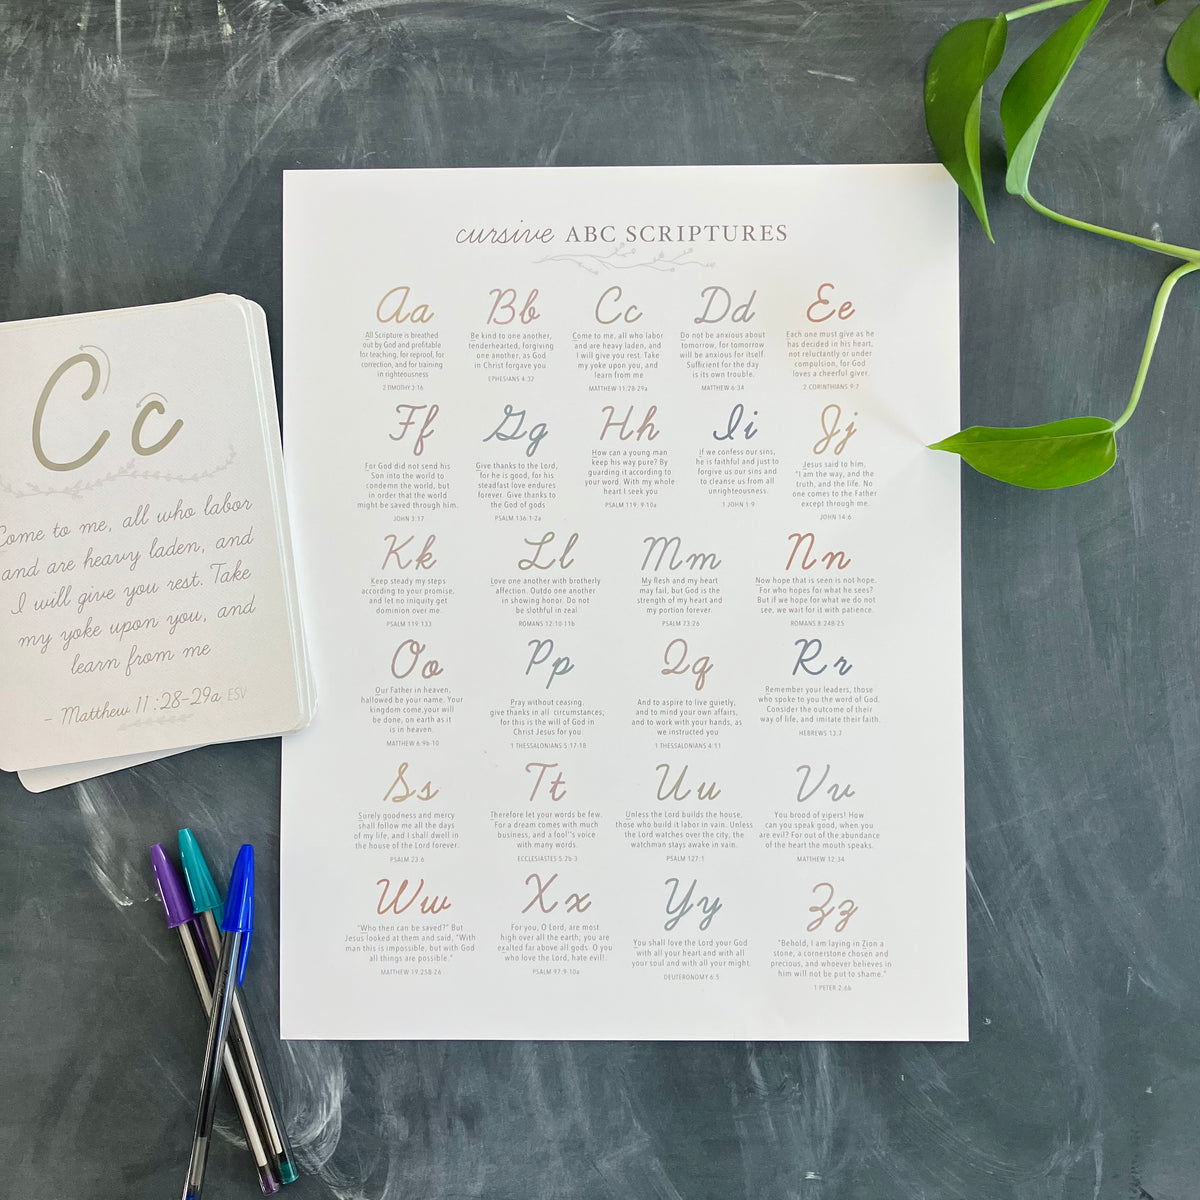 cursive ABC SCRIPTURES
Aa
All Scripture is breathed
out by God and profitable
for teaching, for reproof, for
correction, and for training
in righteousness
2 TIMOTHY 3:16
Bb
Be kind to one another,
tenderhearted, forgiving
one another, as God
in Christ forgave you
EPHESIANS 4:32
Cc
Come to me, all who labor
and are heavy laden, and
I will give you rest. Take
my yoke upon you, and
learn from me
MATTHEW 11:28-29a
Dd
Do not be anxious about
tomorrow, for tomorrow
will be anxious for itself.
Sufficient for the day
is its own trouble.
MATTHEW 6:34
Ee
Each one must give as he
has decided in his heart,
not reluctantly or under
compulsion, for God
loves a cheerful giver.
2 CORINTHIANS 9:7
Ff
For God did not send his
Son into the world to
condemn the world, but
in order that the world
might be saved through him.
JOHN 3:17
Gg
Give thanks to the Lord,
for he is good, for his
steadfast love endures
forever. Give thanks to
the God of gods
PSALM 136:1-2a
Hh
How can a young man
keep his way pure? By
guarding it according to
your word. With my whole
heart I seek you
PSALM 119: 9-10a
Ii
If we confess our sins,
he is faithful and just to
forgive us our sins and
to cleanse us from all
unrighteousness.
1 JOHN 1:9
Jj
Jesus said to him,
"I am the way, and the
truth, and the life. No
one comes to the Father
except through me.
JOHN 14:6
Kk
Keep steady my steps
according to your promise,
and let no iniquity get
dominion over me.
PSALM 119:133
Ll
Love one another with brotherly
affection. Outdo one another
in showing honor. Do not
be slothful in zeal
ROMANS 12:10-11b
Mm
My flesh and my heart
may fail, but God is the
strength of my heart and
my portion forever.
PSALM 73:26
Nn
Now hope that is seen is not hope.
For who hopes for what he sees?
But if we hope for what we do not
see, we wait for it with patience.
ROMANS 8:24B-25
Oo
Our Father in heaven,
hallowed be your name. Your
kingdom come, your will
be done, on earth as it
is in heaven.
MATTHEW 6:9b-10
Pp
Pray without ceasing,
give thanks in all circumstances;
for this is the will of God in
Christ Jesus for you
1 THESSALONIANS 5:17-18
Qq
And to aspire to live quietly,
and to mind your own affairs,
and to work with your hands, as
we instructed you
1 THESSALONIANS 4:11
Rr
Remember your leaders, those
who spoke to you the word of God.
Consider the outcome of their
way of life, and imitate their faith.
HEBREWS 13:7
Ss
Surely goodness and mercy
shall follow me all the days
of my life, and I shall dwell in
the house of the Lord forever.
PSALM 23:6
Tt
Therefore let your words be few.
For a dream comes with much
business, and a fool''s voice
with many words.
ECCLESIASTES 5:2b-3
Uu
Unless the Lord builds the house,
those who build it labor in vain. Unless
the Lord watches over the city, the
watchman stays awake in vain.
PSALM 127:1
Vv
You brood of vipers! How
can you speak good, when you
are evil? For out of the abundance
of the heart the mouth speaks.
MATTHEW 12:34
Ww
"Who then can be saved?" But
Jesus looked at them and said, "With
man this is impossible, but with God
all things are possible."
MATTHEW 19:25B-26
Xx
For you, O Lord, are most
high over all the earth; you are
exalted far above all gods. O you
who love the Lord, hate evil!
PSALM 97:9-10a
Yy
You shall love the Lord your God
with all your heart and with all
your soul and with all your might.
DEUTERONOMY 6:5
Zz
"Behold, I am laying in Zion a
stone, a cornerstone chosen and
precious, and whoever believes in
him will not be put to shame."
1 PETER 2:6b
Cc
Come to me, all who labor
and are heavy laden, and
I will give you rest. Take
my yoke upon you, and
learn from me
- Matthew 11:28-29a ESV